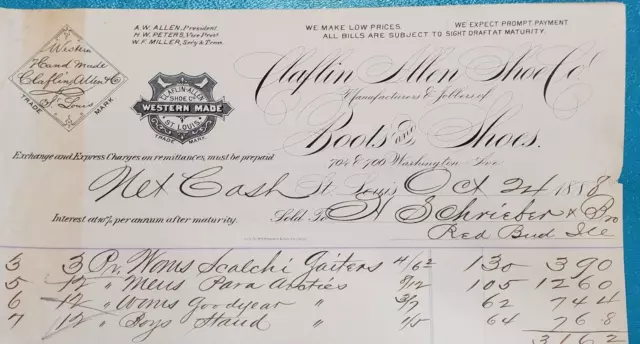 A. W. ALLEN, President.
H. W. PETERS, Vice Prest.
W. F. MILLER, Secy & Treas.
WE MAKE LOW PRICES. WE EXPECT PROMPT PAYMENT
ALL BILLS ARE SUBJECT TO SIGHT DRAFT AT MATURITY.
Western
Hand Made
Claflin Allen & Co
St. Louis
TRADE MARK
CLAFLIN-ALLEN
SHOE CO.
WESTERN MADE
ST. LOUIS.
TRADE MARK.
Claflin Allen Shoe Co.
Manufacturers & Jobbers of
Boots and Shoes.
704 & 706 Washington Ave
Exchange and Express Charges on remittances, must be prepaid
Net Cash St. Louis Oct 24 1888
Interest at 10% per annum after maturity.
Sold To H Schrieber & Bro
Red Bud Ill
3 Pr. Woms Scalchi Gaiters 4/6 130 390
5 12 " Mens Para Arctics 8/12 105 1260
6 12 " Woms Goodyear " 3/7 62 744
7 12 " Boys Stand " 1/5 64 768
3162